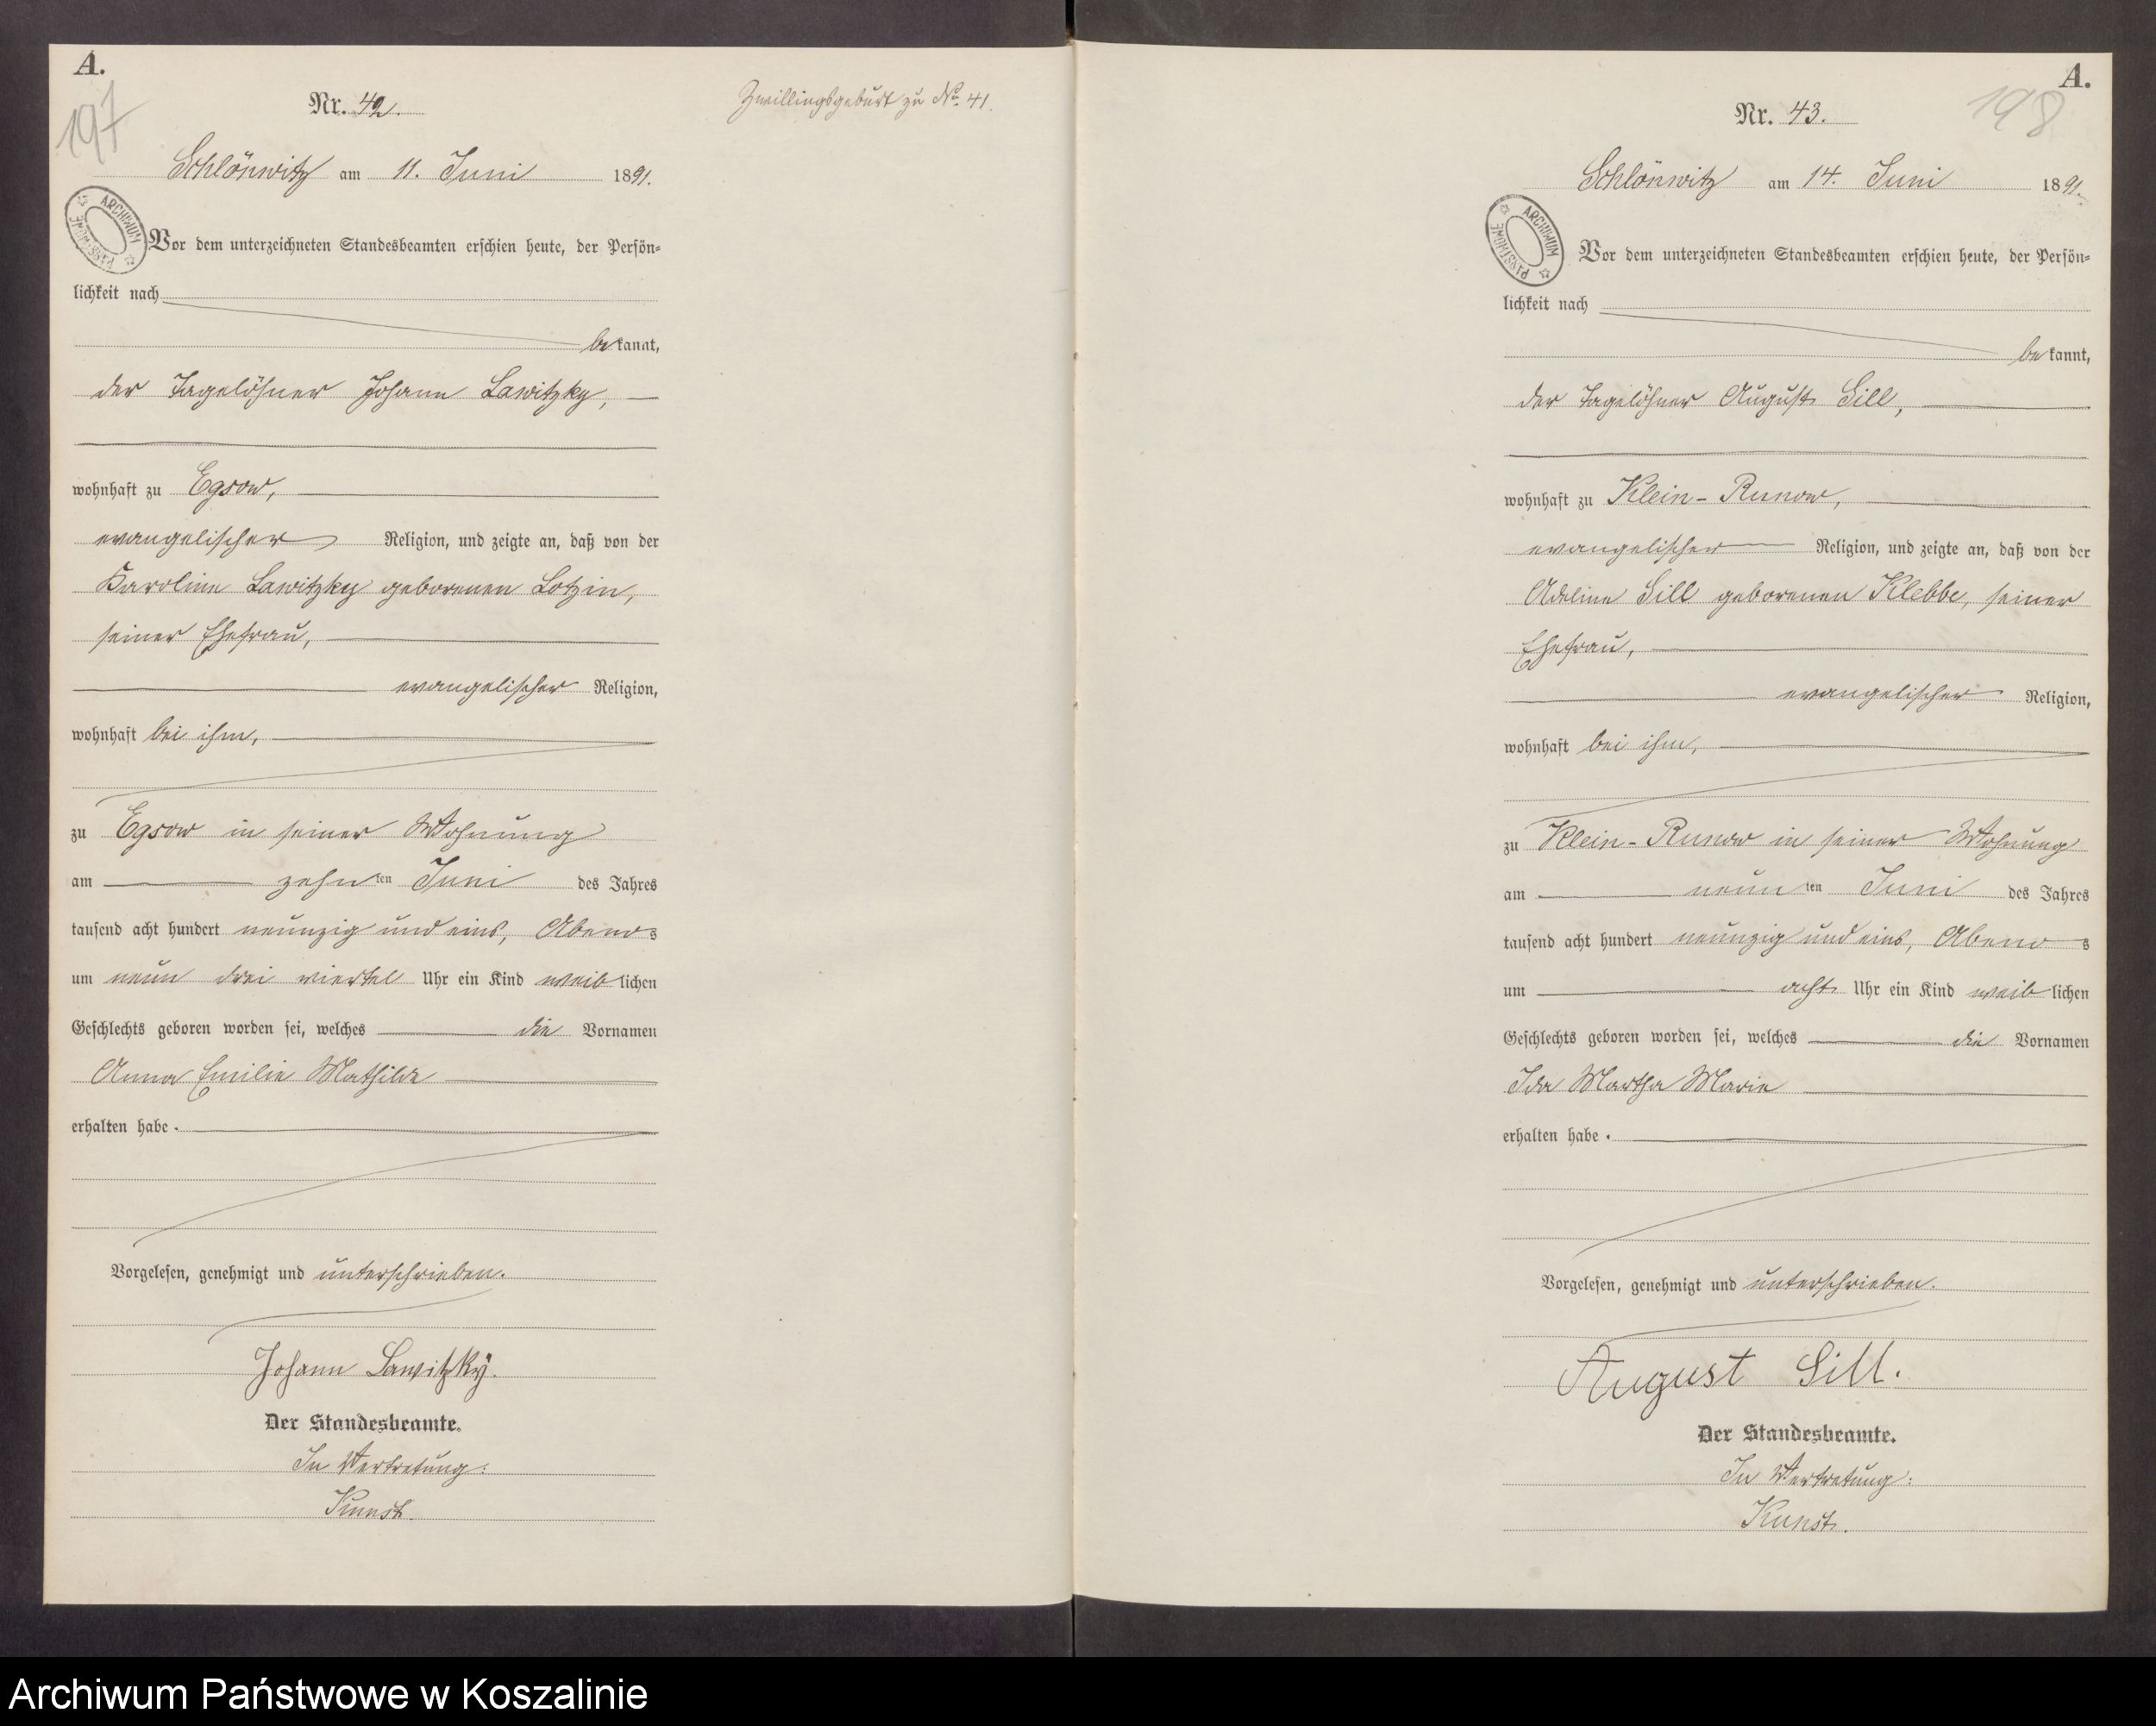 A.
197
Nr. 42.
Zwillingsgeburt zu No. 41.
Schlönwitz am 11. Juni 1891.
ARCHIWUM PAŃSTWOWE
Vor dem unterzeichneten Standesbeamten erschien heute, der Persön=
lichkeit nach
bekannt,
der Tagelöhner Johann Lawitzky,
wohnhaft zu Egsow,
evangelischer Religion, und zeigte an, daß von der
Karoline Lawitzky geborenen Lotzin,
seiner Ehefrau,
evangelischer Religion,
wohnhaft bei ihm,
zu Egsow in seiner Wohnung
am zehnten Juni des Jahres
tausend acht hundert neunzig und eins, Abends
um neun drei viertel Uhr ein Kind weiblichen
Geschlechts geboren worden sei, welches die Vornamen
Anna Emilie Mathilde
erhalten habe.
Vorgelesen, genehmigt und unterschrieben.
Johann Lawitzky.
Der Standesbeamte.
In Vertretung:
Kunst.
A.
198
Nr. 43.
Schlönwitz am 14. Juni 1891.
ARCHIWUM PAŃSTWOWE
Vor dem unterzeichneten Standesbeamten erschien heute, der Persön=
lichkeit nach
bekannt,
der Tagelöhner August Sill,
wohnhaft zu Klein-Runow,
evangelischer Religion, und zeigte an, daß von der
Adeline Sill geborenen Klebbe, seiner
Ehefrau,
evangelischer Religion,
wohnhaft bei ihm,
zu Klein-Runow in seiner Wohnung
am neunten Juni des Jahres
tausend acht hundert neunzig und eins, Abends
um acht Uhr ein Kind weiblichen
Geschlechts geboren worden sei, welches die Vornamen
Ida Martha Marie
erhalten habe.
Vorgelesen, genehmigt und unterschrieben.
August Sill.
Der Standesbeamte.
In Vertretung:
Kunst.
Archiwum Państwowe w Koszalinie